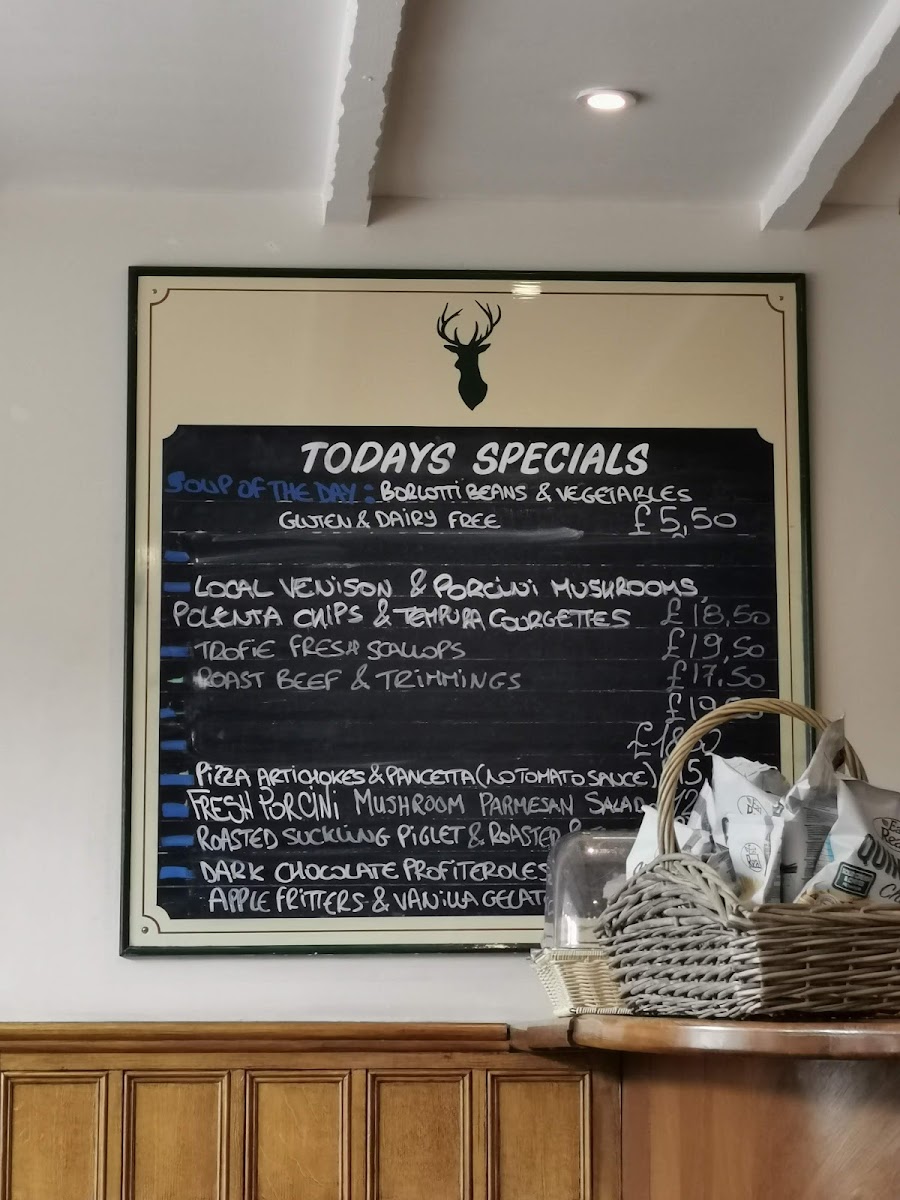 TODAYS SPECIALS
SOUP OF THE DAY: BORLOTTI BEANS & VEGETABLES
GLUTEN & DAIRY FREE £5,50
LOCAL VENISON & PORCINI MUSHROOMS,
POLENTA CHIPS & TEMPURA COURGETTES £18,50
TROFIE FRESH SCALLOPS £19,50
ROAST BEEF & TRIMMINGS £17.50
PIZZA ARTICHOKES & PANCETTA (NO TOMATO SAUCE)
FRESH PORCINI MUSHROOM PARMESAN SALAD
ROASTED SUCKLING PIGLET & ROASTED
DARK CHOCOLATE PROFITEROLES
APPLE FRITTERS & VANILLA GELAT
QUIN